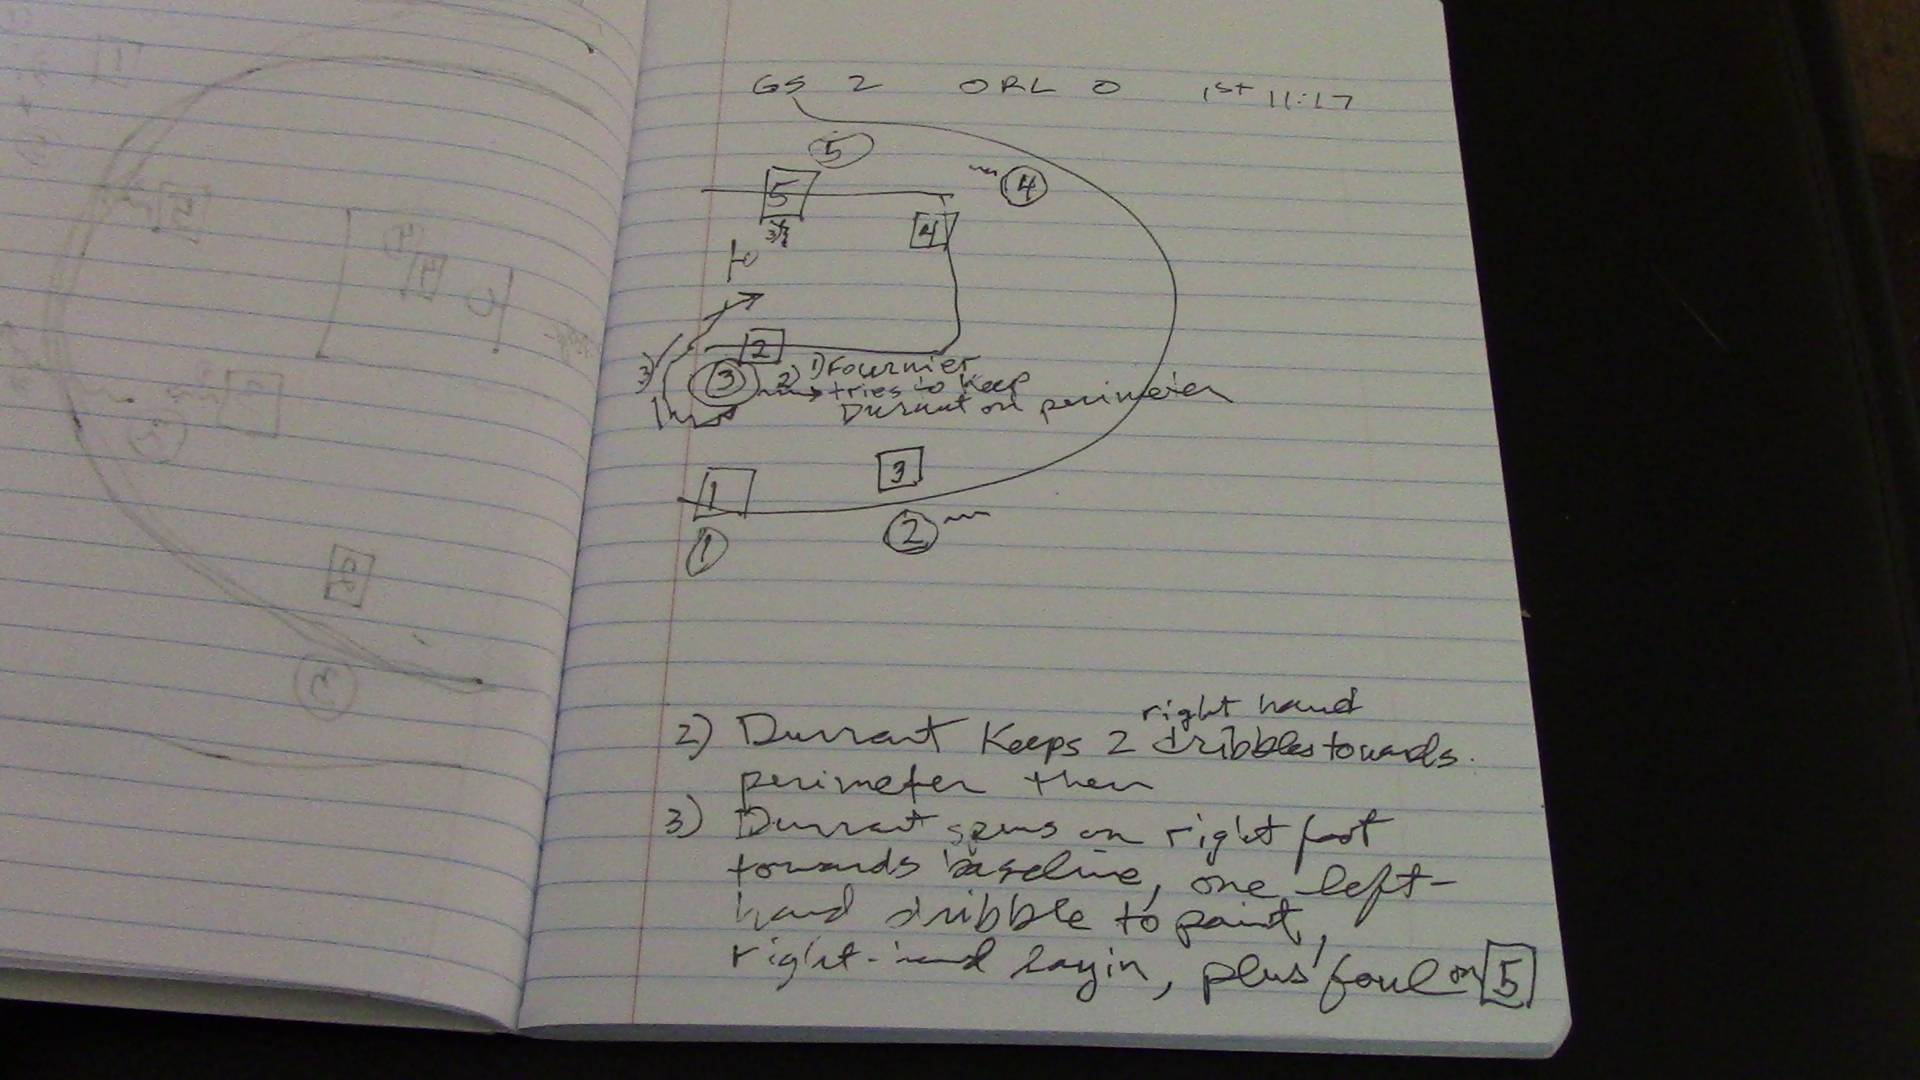 GS 2 ORL 0 1st 11:17
5
4
5
4
2
3)
3
2) 1) Fournier
tries to keep
Durrant on perimeter
3
1
2
1
right hand
2) Durrant Keeps 2 dribbles towards
perimeter then
3) Durrant spins on right foot
towards baseline, one left-
hand dribble to paint,
right-hand layin, plus foul on 5